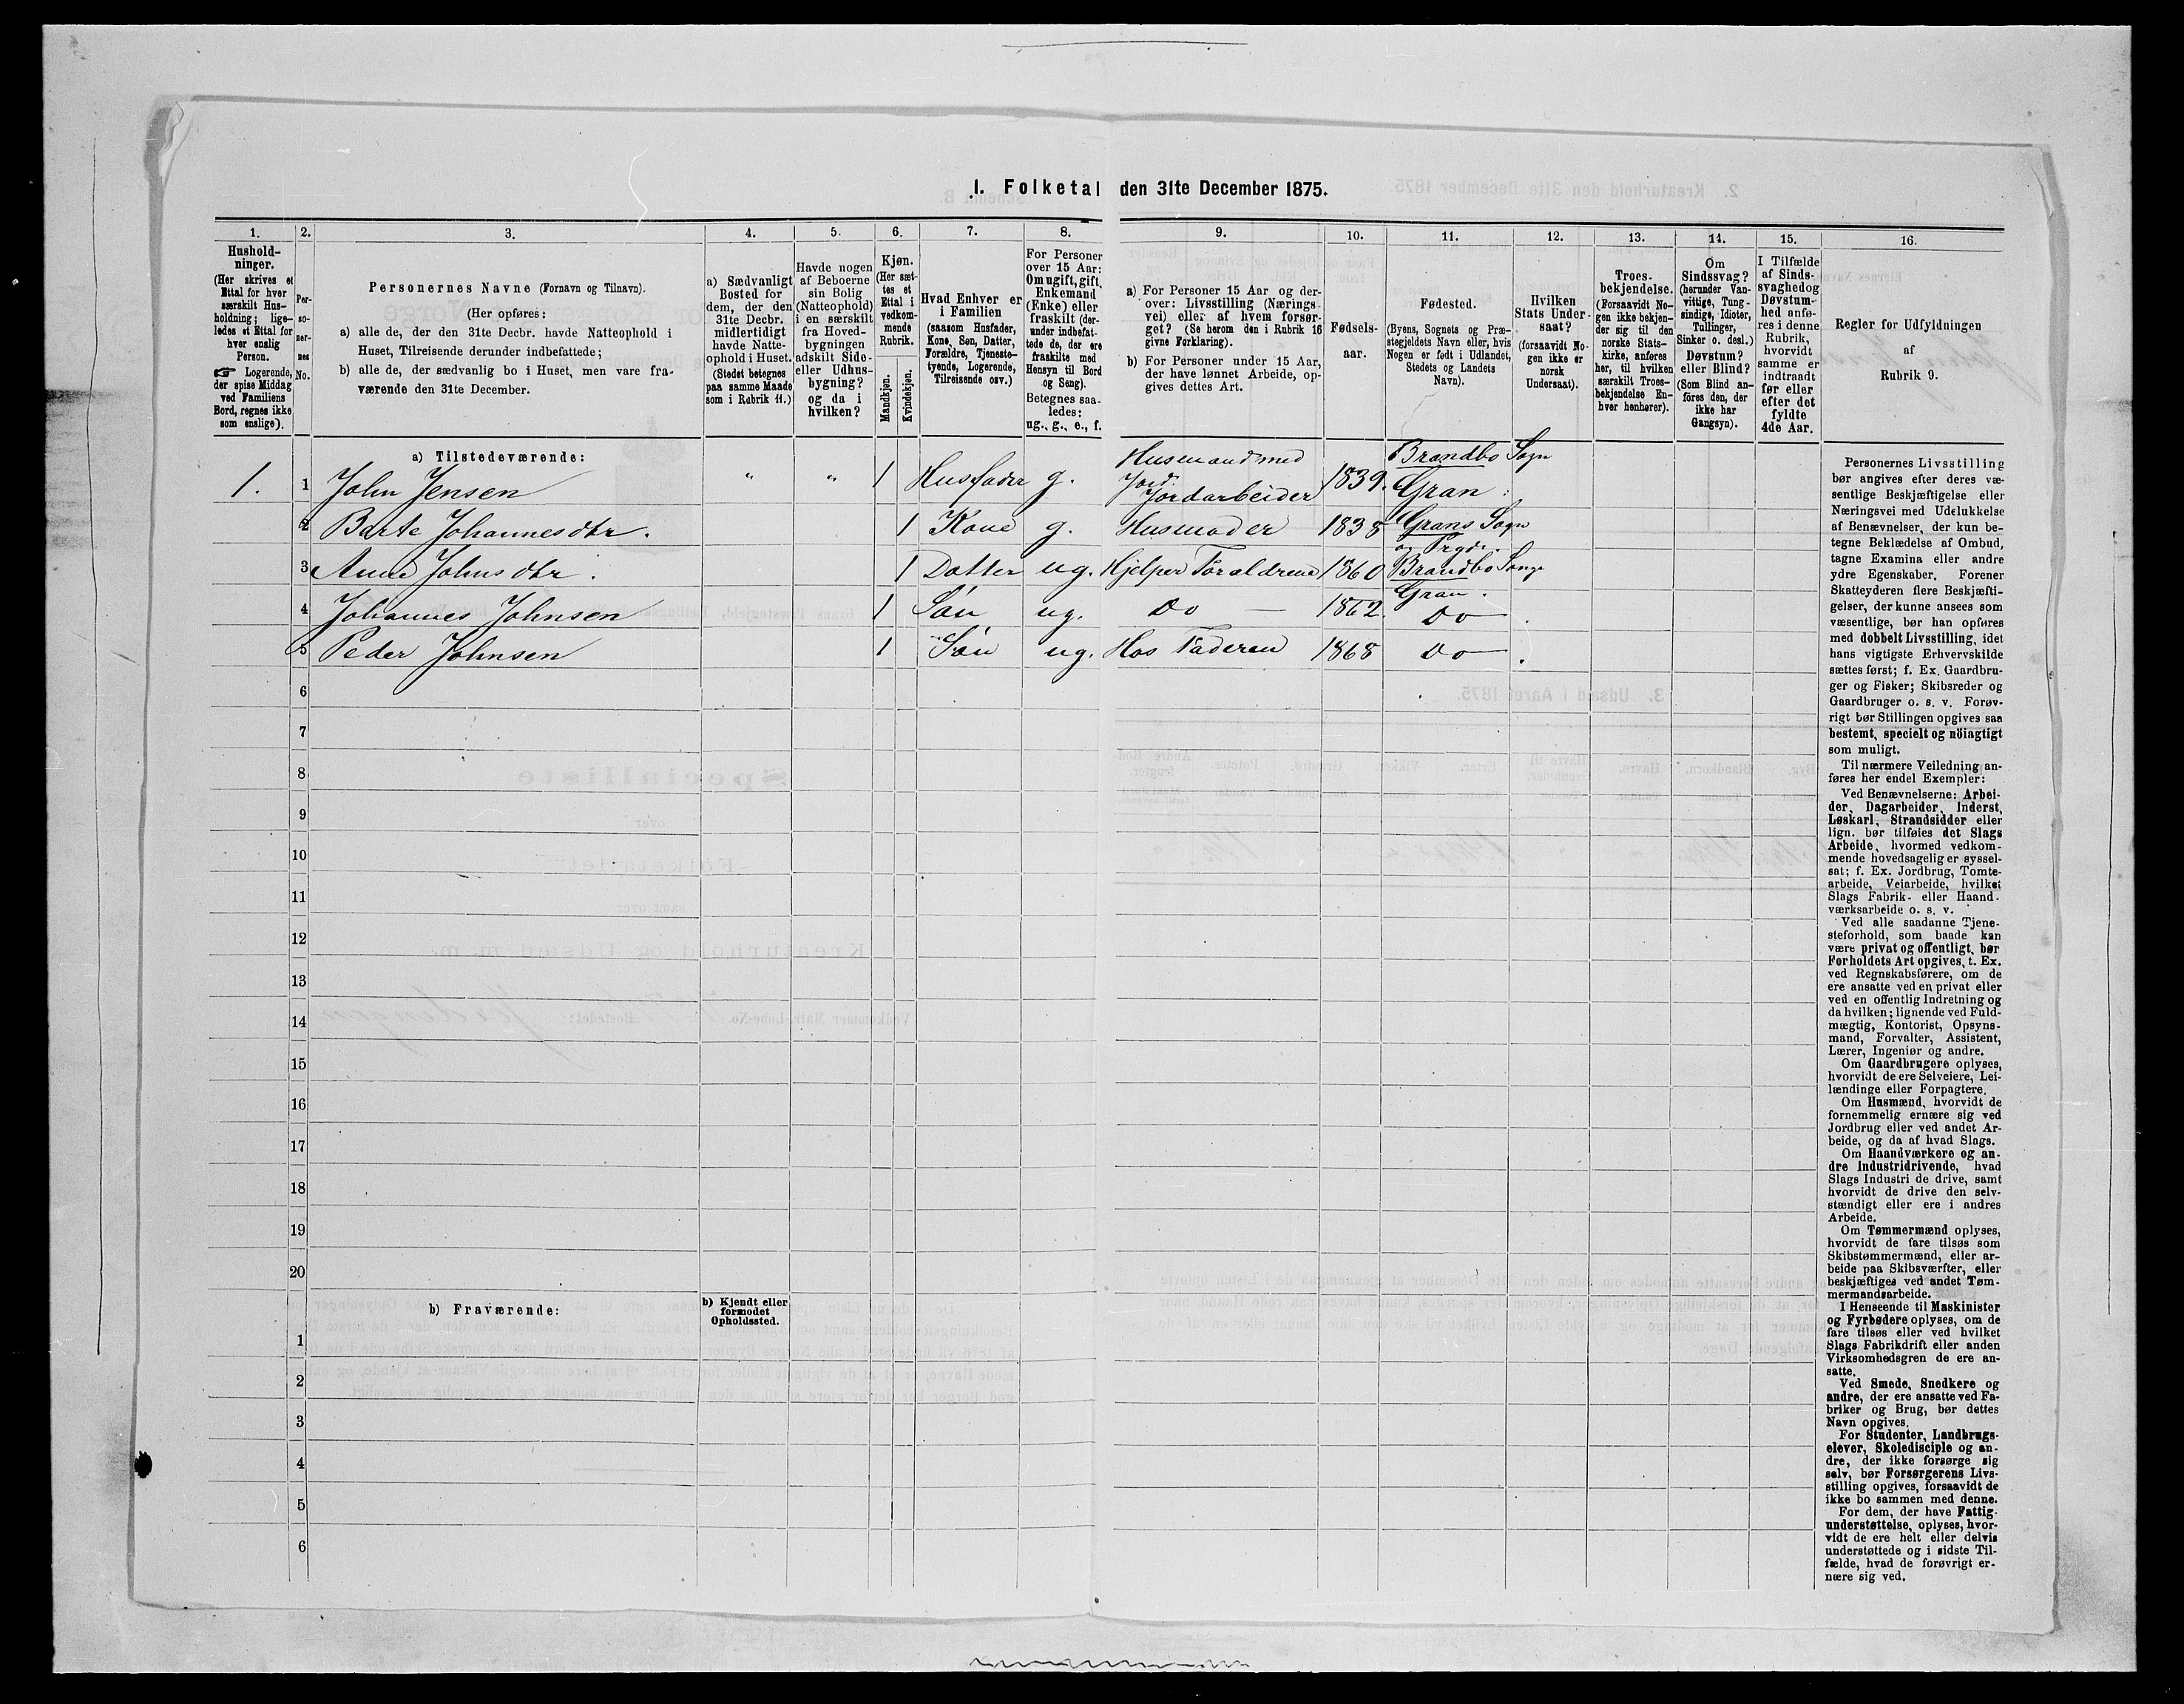 1. Folketal den 31te December 1875.
1.
Hushold-
ninger.
(Her skrives et
Ettal for hver
særskilt Hus-
holdning; lige-
ledes et Ettal for
hver enslig
Person.
☞ Logerende,
der spise Middag
ved Familiens
Bord, regnes ikke
som enslige).
2.
Per-
so-
ner-
nes
No.
3.
Personernes Navne (Fornavn og Tilnavn).
(Her opføres:
a) alle de, der den 31te Decbr. havde Natteophold i
Huset, Tilreisende derunder indbefattede;
b) alle de, der sædvanlig bo i Huset, men vare fra-
værende den 31te December.
4.
a) Sædvanligt
Bosted for
dem, der den
31te Decbr.
midlertidigt
havde Natte-
ophold i Huset.
(Stedet betegnes
paa samme Maade
som i Rubrik 11.)
5.
Havde nogen
af Beboerne
sin Bolig
(Natteophold)
i en særskilt
fra Hoved-
bygningen
adskilt Side-
eller Udhus-
bygning?
og da i
hvilken?
6.
Kjøn.
(Her sæt-
tes et
Ettal i
vedkom-
mende
Rubrik.
Mandkjøn.
Kvindekjøn.
7.
Hvad Enhver er
i Familien
(saasom Husfader,
Kone, Søn, Datter,
Forældre, Tjeneste-
tyende, Logerende,
Tilreisende osv.)
8.
For Personer
over 15 Aar:
Om ugift, gift,
Enkemand
(Enke) eller
fraskilt (der-
under indbefat-
tede de, der ere
fraskilte med
Hensyn til Bord
og Seng).
Betegnes saa-
ledes:
ug., g., e., f.
9.
a) For Personer 15 Aar og der-
over: Livsstilling (Nærings-
vei) eller af hvem forsør-
get? (Se herom den i Rubrik 16
givne Forklaring).
b) For Personer under 15 Aar,
der have lønnet Arbeide, op-
gives dettes Art.
10.
Fødsels-
aar.
11.
Fødested.
(Byens, Sognets og Præ-
stegjeldets Navn eller, hvis
Nogen er født i Udlandet,
Stedets og Landets
Navn).
12.
Hvilken
Stats Under-
saat?
(forsaavidt No-
gen ikke er
norsk
Undersaat).
13.
Troes-
bekjendelse.
(Forsaavidt No-
gen ikke bekjen-
der sig til den
norske Stats-
kirke, anføres
her, til hvilken
særskilt Troes-
bekjendelse En-
hver henhører).
14.
Om
Sindssvag?
(herunder Van-
vittige, Tung-
sindige, Idioter,
Tullinger,
Sinker o. desl.)
Døvstum?
eller Blind?
(Som Blind an-
føres den, der
ikke har
Gangsyn).
15.
I Tilfælde
af Sinds-
svaghed og
Døvstum-
hed anfø-
res i denne
Rubrik,
hvorvidt
samme er
indtraadt
før eller
efter det
fyldte
4de Aar.
16.
Regler for Udfyldningen
af
Rubrik 9.
a) Tilstedeværende:
1. 1 John Jensen " " 1 Husfader g. Husmand med Jord. Jordarbeider 1839. Brandbo Sogn Gran
2 Barte Johannesdtr. 1 Kone g. Husmoder 1838 Grans Sogn og Prgd.
3 Anne Johnsdtr. 1 Datter ug. Hjelper Forældrene 1860 Brandbo Songn Gran.
4 Johannes Johnsen 1 Søn ug. Do 1862. Do
5 Peder Johnsen 1 Søn ug. Hos Faderen 1868 Do
6
7
8
9
10
11
12
13
14
15
16
17
18
19
20
b) Fraværende:
b) Kjendt eller
formodet
Opholdssted.
1
2
3
4
5
6
Personernes Livsstilling
bør angives efter deres væ-
sentlige Beskjæftigelse eller
Næringsvei med Udelukkelse
af Benævnelser, der kun be-
tegne Beklædelse af Ombud,
tagne Examina eller andre
ydre Egenskaber. Forener
Skatteyderen flere Beskjæfti-
gelser, der kunne ansees som
væsentlige, bør han opføres
med dobbelt Livsstilling, idet
hans vigtigste Erhvervskilde
sættes først; f. Ex. Gaardbru-
ger og Fisker; Skibsreder og
Gaardbruger o. s. v. Forøv-
rigt bør Stillingen opgives saa
bestemt, specielt og nöiagtigt
som muligt.
Til nærmere Veiledning an-
føres her endel Exempler:
Ved Benævnelserne: Arbei-
der, Dagarbeider, Inderst,
Løskarl, Strandsidder eller
lign. bør tilføies det Slags
Arbeide, hvormed vedkom-
mende hovedsagelig er syssel-
sat; f. Ex. Jordbrug, Tomte-
arbeide, Veiarbeide, hvilket
Slags Fabrik- eller Haand-
værksarbeide o. s. v.
Ved alle saadanne Tjene-
steforhold, som baade kan
være privat og offentligt, bør
Forholdets Art opgives, t. Ex.
ved Regnskabsførere, om de
ere ansatte ved en privat eller
ved en offentlig Indretning og
da hvilken; lignende ved Fuld-
mægtig, Kontorist, Opsyns-
mand, Forvalter, Assistent,
Lærer, Ingeniør og andre.
Om Gaardbrugere oplyses,
hvorvidt de ere Selveiere, Lei-
lændinge eller Forpagtere.
Om Husmænd, hvorvidt de
fornemmelig ernære sig ved
Jordbrug eller ved andet Ar-
beide, og da af hvad Slags.
Om Haandværkere og an-
dre Industridrivende, hvad
Slags Industri de drive, samt
hvorvidt de drive den selv-
stændigt eller ere i andres
Arbeide.
Om Tømmermænd oplyses,
hvorvidt de fare tilsøs som
Skibstømmermænd, eller ar-
beide paa Skibsværfter, eller
beskjæftiges ved andet Tøm-
mermandsarbeide.
I Henseende til Maskinister
og Fyrbødere oplyses, om de
fare tilsøs eller ved hvilket
Slags Fabrikdrift eller anden
Virksomhedsgren de ere an-
satte.
Ved Smede, Snedkere og
andre, der ere ansatte ved Fa-
briker og Brug, bør dettes
Navn opgives.
For Studenter, Landbrugs-
elever, Skoledisciple og an-
dre, der ikke forsørge sig
selv, bør Forsørgerens Livs-
stilling opgives, forsaavidt de
ikke bo sammen med denne.
For dem, der have Fattig-
understøttelse, oplyses, hvor-
vidt de ere helt eller delvis
understøttede og i sidste Til-
fælde, hvad de forøvrigt er-
nære sig ved.